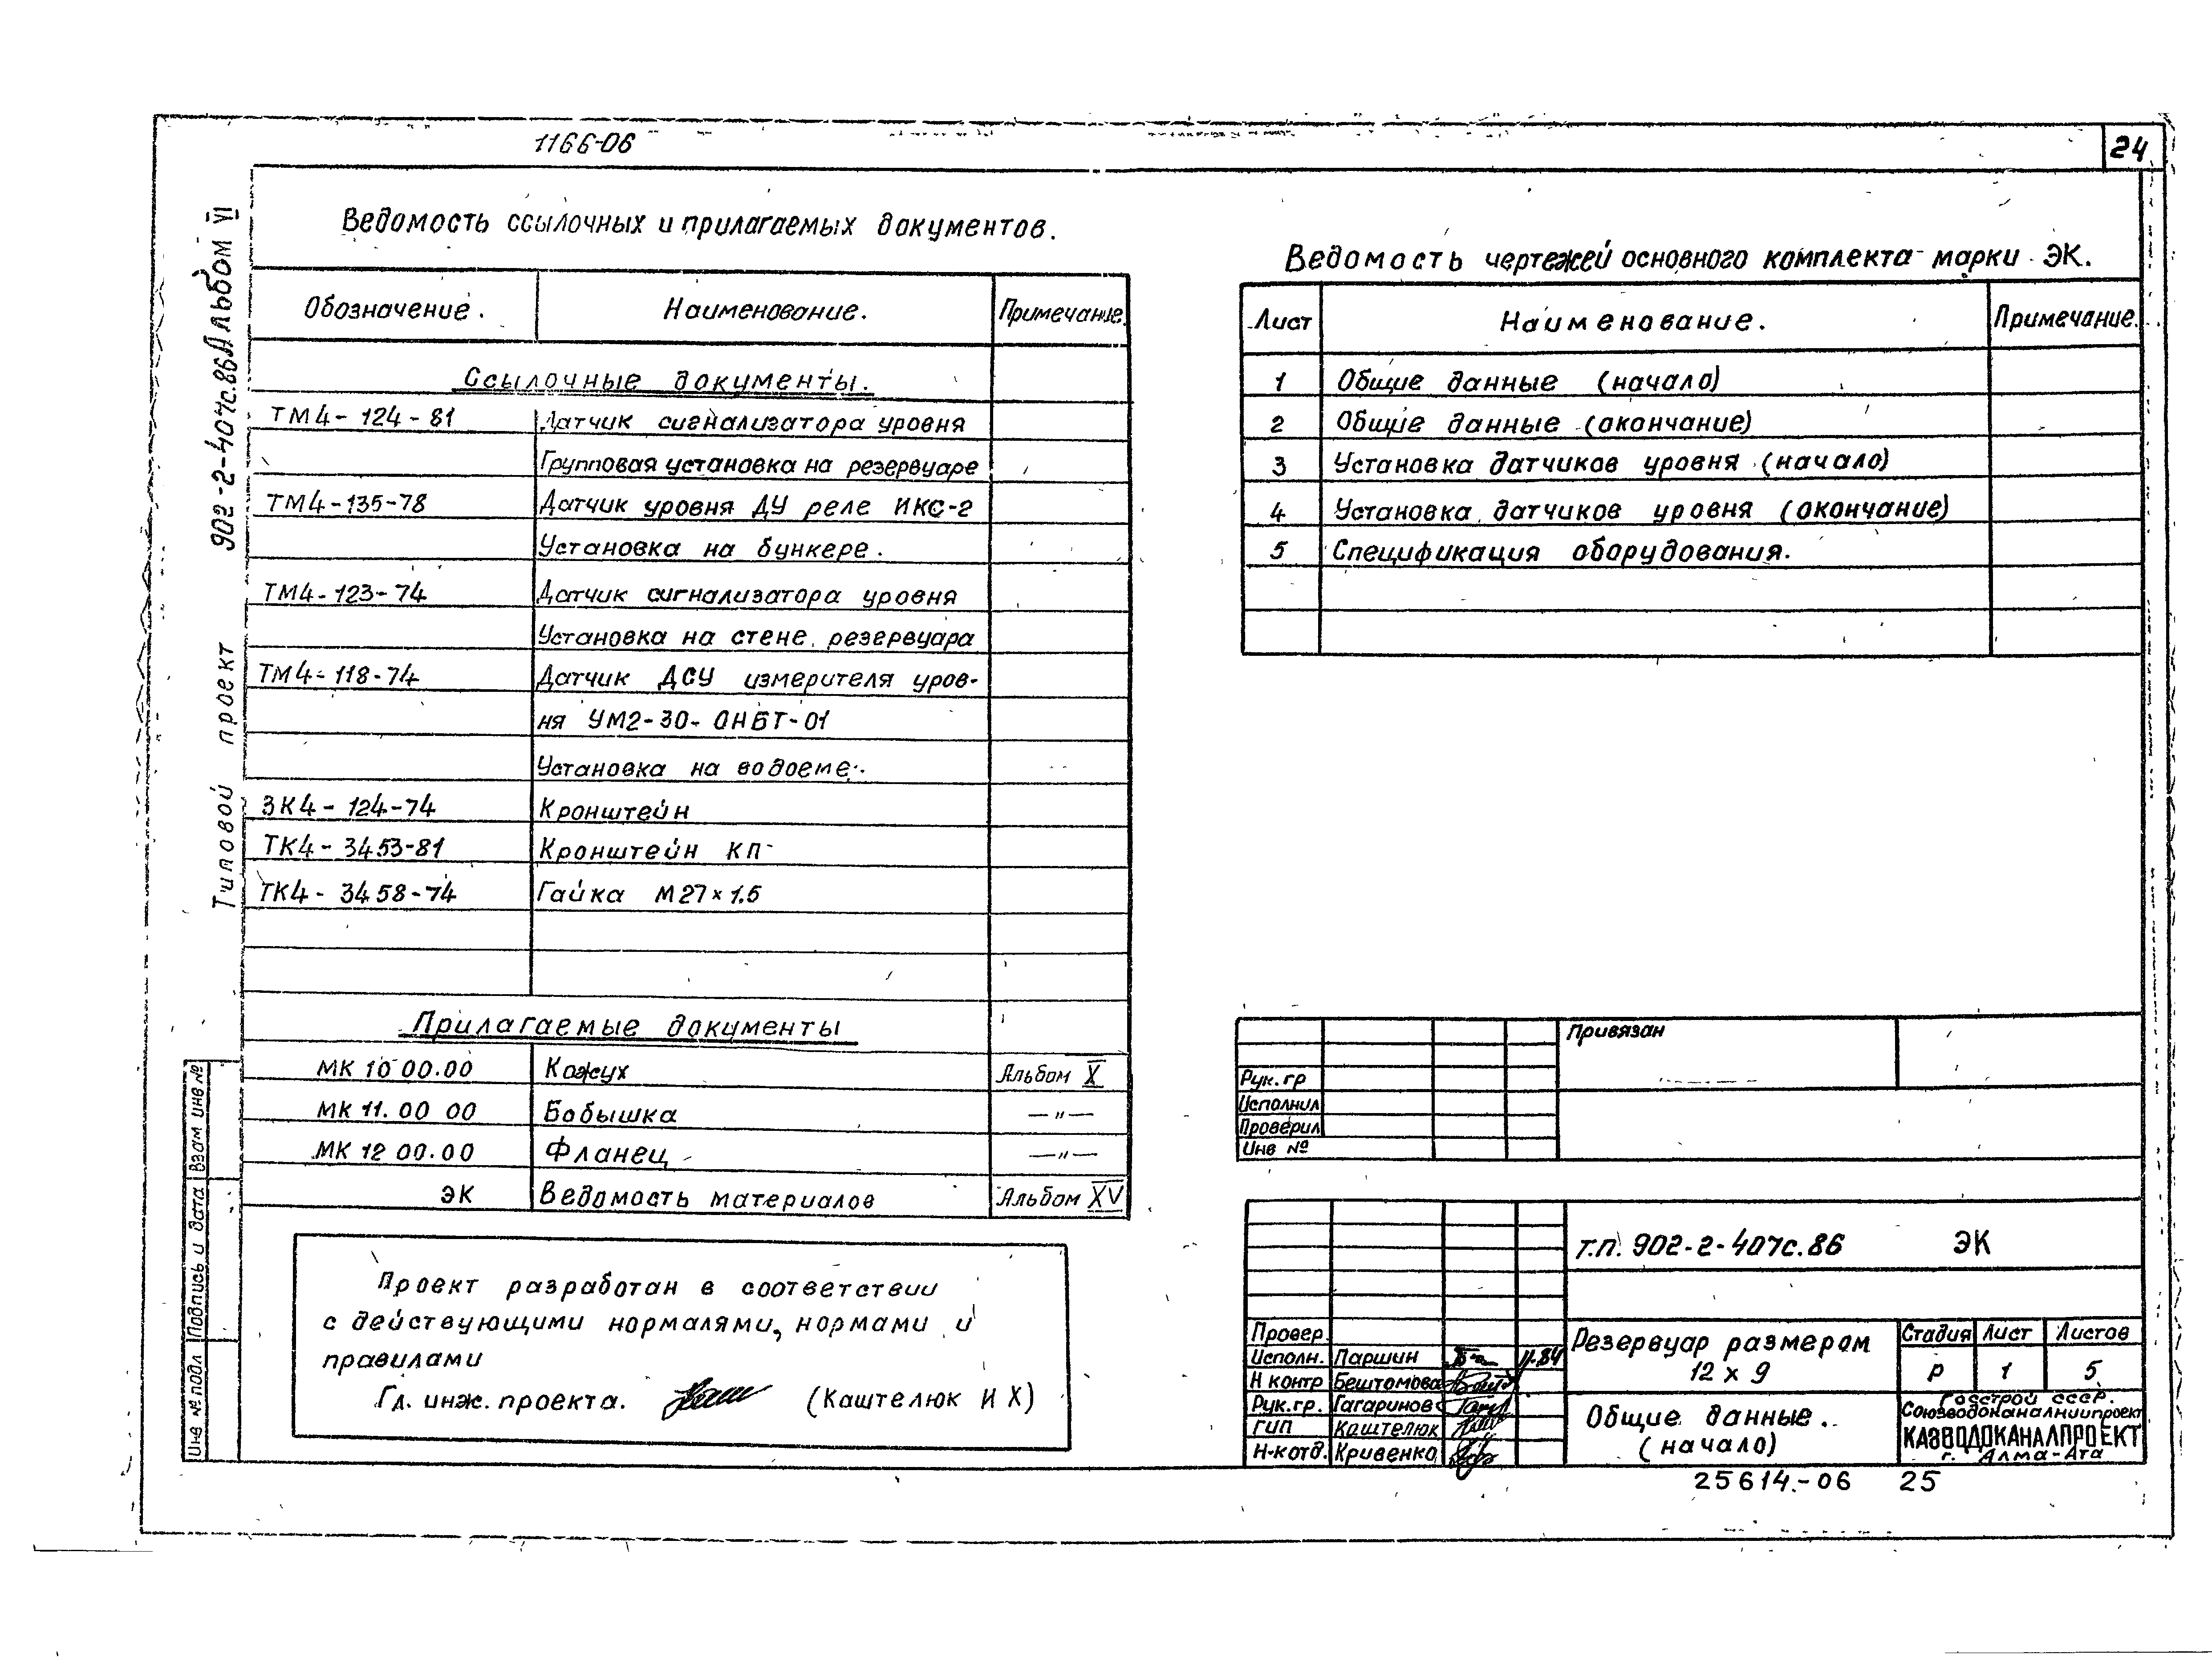 1166-06
24
Типовой проект 902-2-407с.86 Альбом VI
Ведомость ссылочных и прилагаемых документов.
Обозначение. Наименование. Примечание.
Ссылочные документы.
ТМ4-124-81 Датчик сигнализатора уровня
Групповая установка на резервуаре
ТМ4-135-78 Датчик уровня ДУ реле ИКС-2
Установка на бункере.
ТМ4-123-74 Датчик сигнализатора уровня
Установка на стене резервуара
ТМ4-118-74 Датчик ДСУ измерителя уров-
ня УМ2-30-ОНБТ-01
Установка на водоеме.
ЗК4-124-74 Кронштейн
ТК4-3453-81 Кронштейн КП
ТК4-3458-74 Гайка М27×1.5
Прилагаемые документы
МК 10 00.00 Кожух Альбом X
МК 11.00 00 Бобышка —"—
МК 12 00.00 Фланец —"—
ЭК Ведомость материалов Альбом XV
Проект разработан в соответствии
с действующими нормалями, нормами и
правилами
Гл. инж. проекта. (Каштелюк И Х)
Инв № подл Подпись и дата Взам инв №
Ведомость чертежей основного комплекта марки ЭК.
Лист Наименование. Примечание.
1 Общие данные (начало)
2 Общие данные (окончание)
3 Установка датчиков уровня (начало)
4 Установка датчиков уровня (окончание)
5 Спецификация оборудования.
Привязан
Рук.гр
Исполнил
Проверил
Инв №
т.п. 902-2-407с.86 ЭК
Провер.
Исполн. Паршин 11.84
Н контр Бештомова
Рук.гр. Гагаринов
ГИП Каштелюк
Н-котд. Кривенко
Резервуар размером
12 х 9
Общие данные.
(начало)
Стадия Лист Листов
Р 1 5
Госстрой СССР.
Союзводоканалниипроект
КАЗВОДОКАНАЛПРОЕКТ
г. Алма-Ата
25614.-06 25